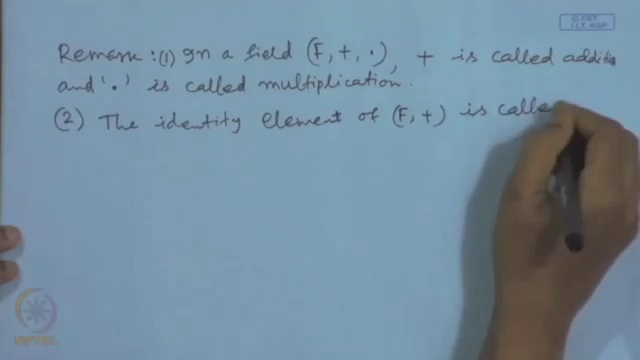 Remark : (1) In a field (F, +, ·), + is called additio
and '·' is called multiplication.
(2) The identity element of (F, +) is calle
© CET
I.I.T. KGP
NPTEL